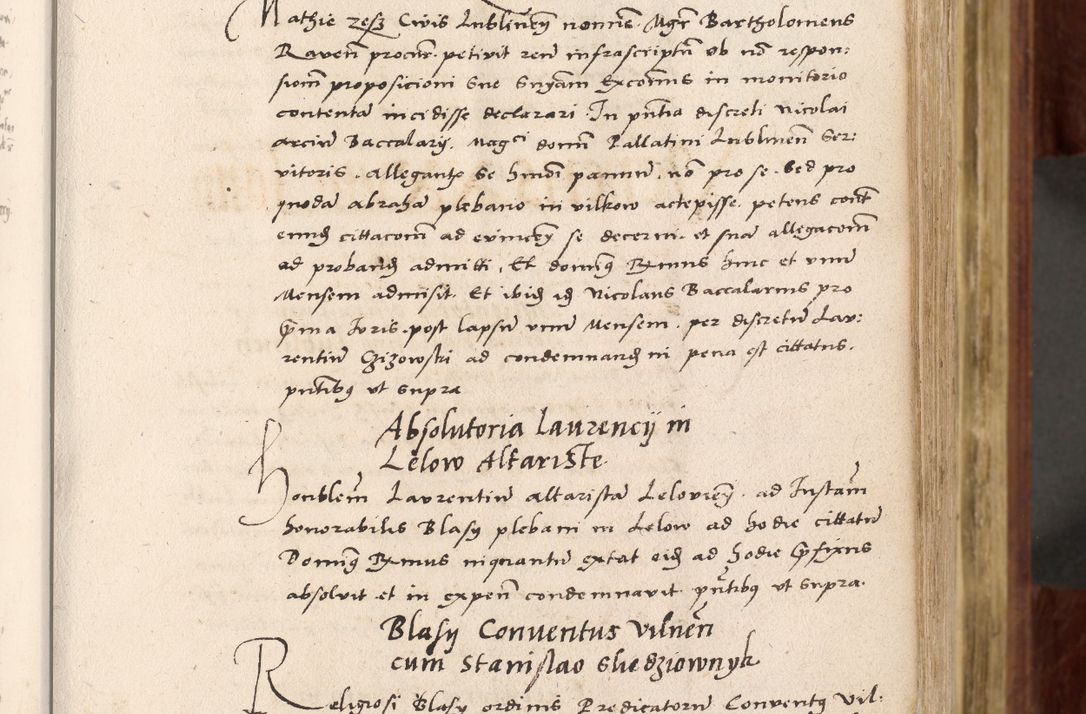 Mathie zesz Civis Lublineñ nomine Mgr Bartholomeus
Raveñ procur. petivit reũ infrascriptũ ob nõ respon:
sionẽ proposicioni sue Snỹam Excõis in monitorio
contentã incidisse declarari In pñtia discreti Nicolai
arciũ Baccalarij, Mag^ci domñ Pallatini Lublineñ Ser:
vitoris, allegantẽ se pannũ nõ pro se sed pro
quodã abrahã plebano in vilkow accepisse, petens cont
eundẽ cittacionẽ ad se decerni et suã allegacionẽ
ad probandũ admitti, Et domin9 Rxmus hinc et unũ
Mensem admisit. Et ibidẽ idẽ Nicolaus Baccalarius pro
p̃ma Juris post lapsũ unũ Mensem, per discretũ Lau:
rentiũ Czizowski ad condemnandũ in pena est cittatus,
pñtibus ut supra
Absolutoria Laurencij in
Lelow Altariste
Honblem̃ Laurentiũ altaristã Leloviẽñ ad Instañ
honorabilis Blasij plebani in Lelow ad hodie cittatũ
Domin9 Rxmus inquantũ extat eidẽ ad hodie p̃fixus
absolvit et in expeñ condemnavit pñtibus ut supra
Blasij Conventus Vilneñ
cum Stanislao Sliedziownyk
Religiosi Blasij ordinis Predicatorũ Convent9 Vil: